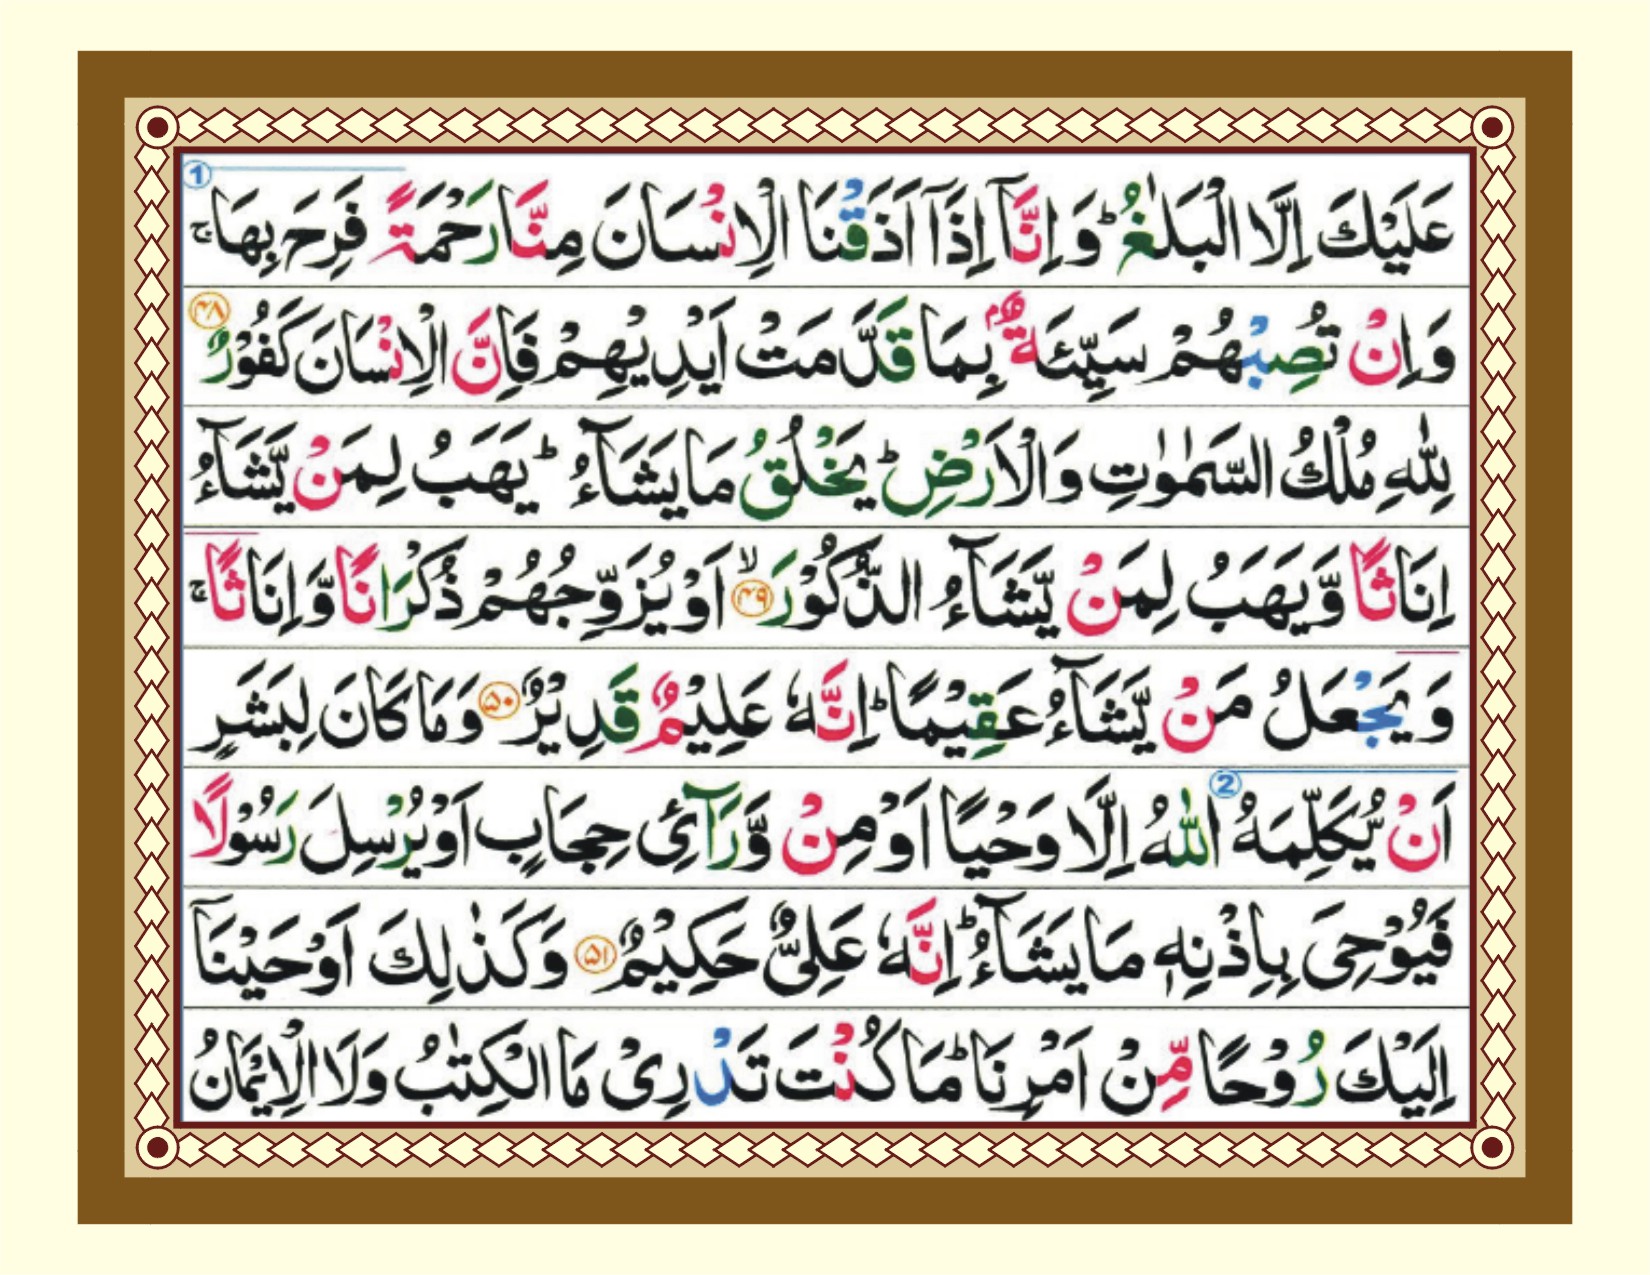 ①
عَلَيْكَ اِلَّا الْبَلٰغُ ؕ وَ اِنَّاۤ اِذَاۤ اَذَقْنَا الْاِنْسَانَ مِنَّا رَحْمَةً فَرِحَ بِهَا ۚ
وَاِنْ تُصِبْهُمْ سَيِّئَةٌۢ بِمَا قَدَّمَتْ اَيْدِيْهِمْ فَاِنَّ الْاِنْسَانَ كَفُوْرٌ ۴۸
لِلّٰهِ مُلْكُ السَّمٰوٰتِ وَالْاَرْضِ ؕ يَخْلُقُ مَا يَشَآءُ ؕ يَهَبُ لِمَنْ يَّشَآءُ
اِنَاثًا وَّيَهَبُ لِمَنْ يَّشَآءُ الذُّكُوْرَ ۙ ۴۹ اَوْ يُزَوِّجُهُمْ ذُكْرَانًا وَّاِنَاثًا ۚ
وَ يَجْعَلُ مَنْ يَّشَآءُ عَقِيْمًا ؕ اِنَّهٗ عَلِيْمٌ قَدِيْرٌ ۵۰ وَمَا كَانَ لِبَشَرٍ
②
اَنْ يُّكَلِّمَهُ اللّٰهُ اِلَّا وَحْيًا اَوْ مِنْ وَّرَآئِ حِجَابٍ اَوْ يُرْسِلَ رَسُوْلًا
فَيُوْحِىَ بِاِذْنِهٖ مَا يَشَآءُ ؕ اِنَّهٗ عَلِىٌّ حَكِيْمٌ ۵۱ وَكَذٰلِكَ اَوْحَيْنَاۤ
اِلَيْكَ رُوْحًا مِّنْ اَمْرِنَا ؕ مَا كُنْتَ تَدْرِىْ مَا الْكِتٰبُ وَلَا الْاِيْمَانُ